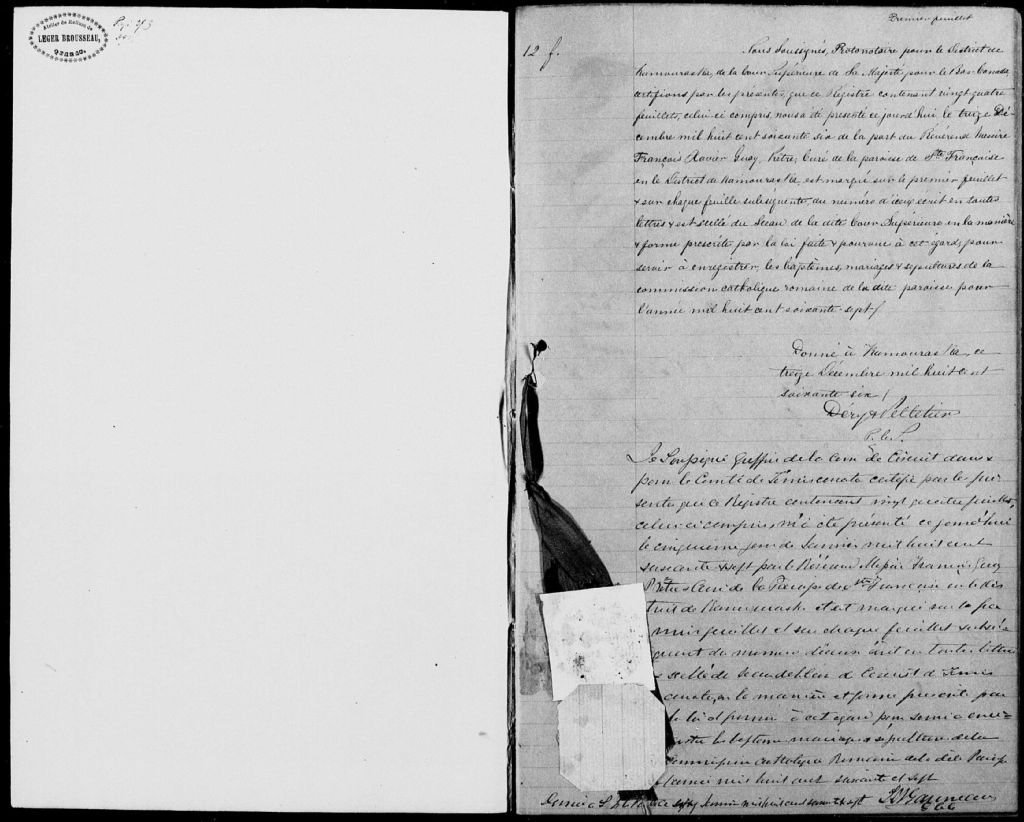 Atelier de Reliure de
LEGER BROUSSEAU,
QUEBEC.
Premier feuillet
12 f.
Nous Soussignés, Protonotaire pour le District de
Kamouraska, de la Cour Supérieure de Sa Majesté pour le Bas-Canada,
certifions par les présentes, que ce Régistre contenant vingt quatre
feuillets, celui-ci compris, nous a été présenté ce jourd'hui, le treize Dé-
cembre mil huit cent soixante six de la part du Révérend Messire
François Xavier Guay, Prêtre, Curé de la paroisse de Ste Françoise
en le District de Kamouraska, est marqué sur le premier feuillet
& sur chaque feuille subséquente, du numéro d'iceux écrit en toutes
lettres & est scellé du Sceau de la dite Cour Supérieure en la manière
& forme prescrite par la loi faite & pourvue à cet égard, pour
servir à enregistrer, les baptêmes, mariages & sépultures de la
commission catholique romaine de la dite paroisse pour
l'année mil huit cent soixante-sept/
Donné à Kamouraska, ce
treize Décembre mil huit cent
soixante six /
Déry & Pelletier
P.C.S.
Je Soussigné Greffier de la Cour de Circuit dans &
pour le Comté de Témiscouata certifie par les pré-
sentes que ce Régistre contenant vingt quatre feuillets,
celui-ci compris, m'a été présenté ce jourd'hui
le cinquième jour de Janvier mil huit cent
soixante & sept par le Révérend Messire François Guay
Prêtre & Curé de la Paroisse de Ste Françoise en le dis
trict de Kamouraska et est marqué sur le pre
mier feuillet et sur chaque feuillet subsé-
quent du numéro d'iceux écrit en toutes lettres
scellé du Sceau de la Cour de Circuit de Témis
couata, en la manière et forme prescrite par
la loi et pourvu à cet égard pour servir à enré-
gistrer les baptêmes mariages & sépultures de la
Commission Catholique Romaine de la dite Paroisse
l'année mil huit cent soixante et sept
Janvier mil huit cent soixante & sept
C.C.C.